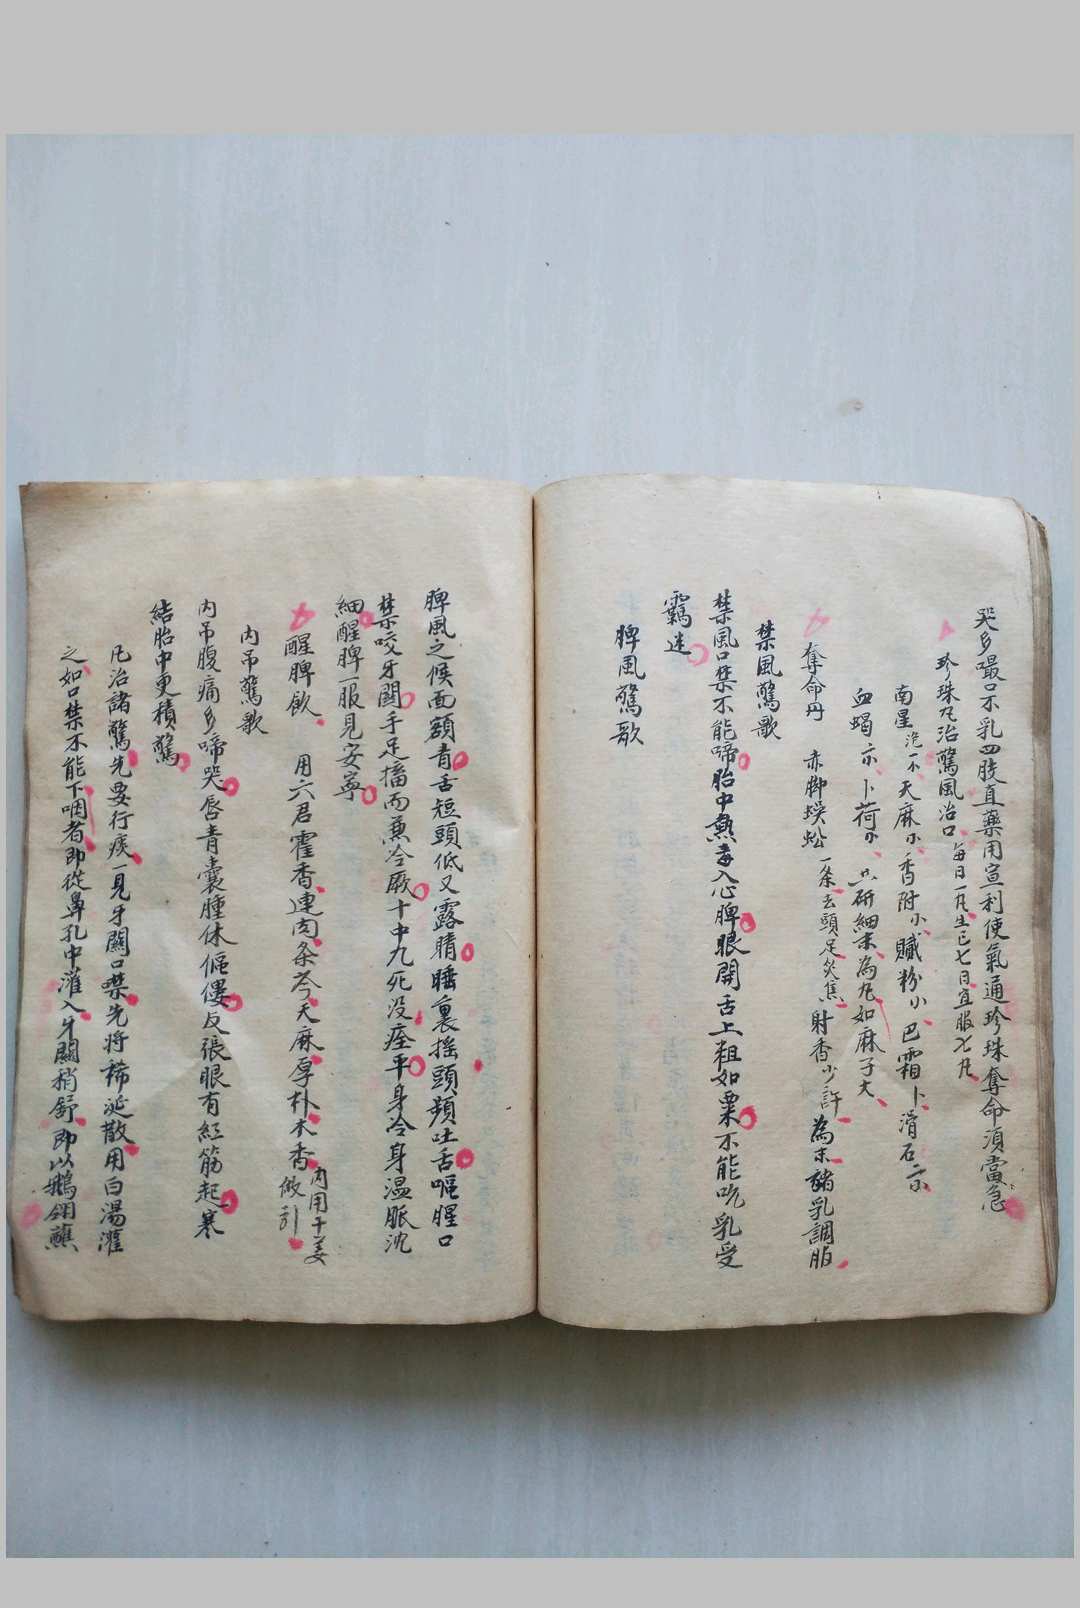 哭多嘬口不乳四肢直藥用宣利使氣通珍珠奪命須當急
珍珠丸治驚風治口每日一凡生已七日宜服七丸
南星泡一 天麻 香附小 膩粉小 巴霜卜 滑石
血蝎 卜荷 共研細末為丸如麻子大
奪命丹 赤脚蜈蚣一条去頭足炙焦 射香少許 為末豬乳調服
禁風驚歌
禁風口禁不能啼胎中熱毒入心脾眼開舌上粗如粟不能吃乳受
羈迷
脾風驚歌
脾風之候面額青舌短頭低又露睛睡裏搖頭頻吐舌嘔腥口
禁咬牙関手足搐而兼冷厥十中九死没痊平身冷身温脈沈
細醒脾一服見安寧
醒脾飲 用六君霍香連肉条芩天麻厚朴木香內用干姜做引
內吊驚歌
內吊腹痛多啼哭唇青囊腫休傴僂反張眼有紅筋起寒
結胎中更積驚
凡治諸驚先要行痰一見牙關口噤先將稀涎散用白湯灌
之如口禁不能下咽者即從鼻孔中灌入牙關稍舒即以鵝翎蘸